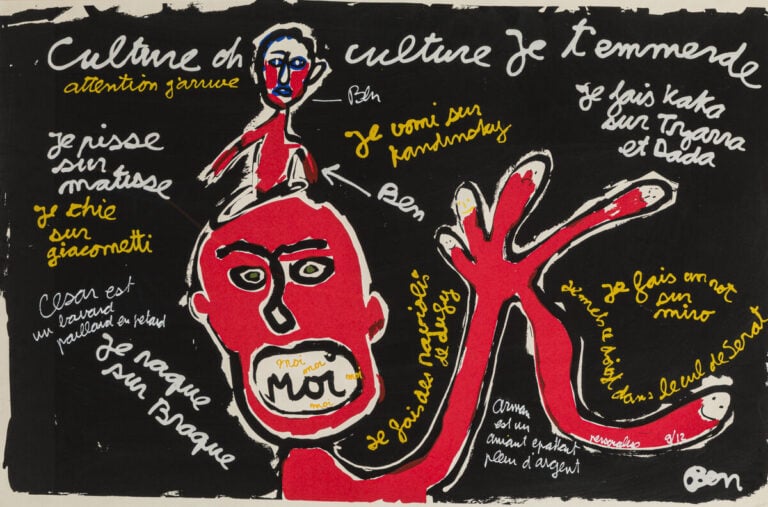 Culture oh culture Je t'emmerde
attention j'arrive
Ben
Je vomi sur
kandinsky
Je fais kaka
sur Tzarra
et Dada
Je pisse
sur
matisse
Ben
Je chie
sur
giacometti
Cesar est
un bavard
paillard en petard
Je raque
sur Braque
moi
moi
moi
MOI
moi
Je fais des raviolis
de dufy
Je fais un rot
sur
miro
Je mets ce doigt dans le cul de Serat
arman
est un
amant
plein d'argent
9/12
Ben